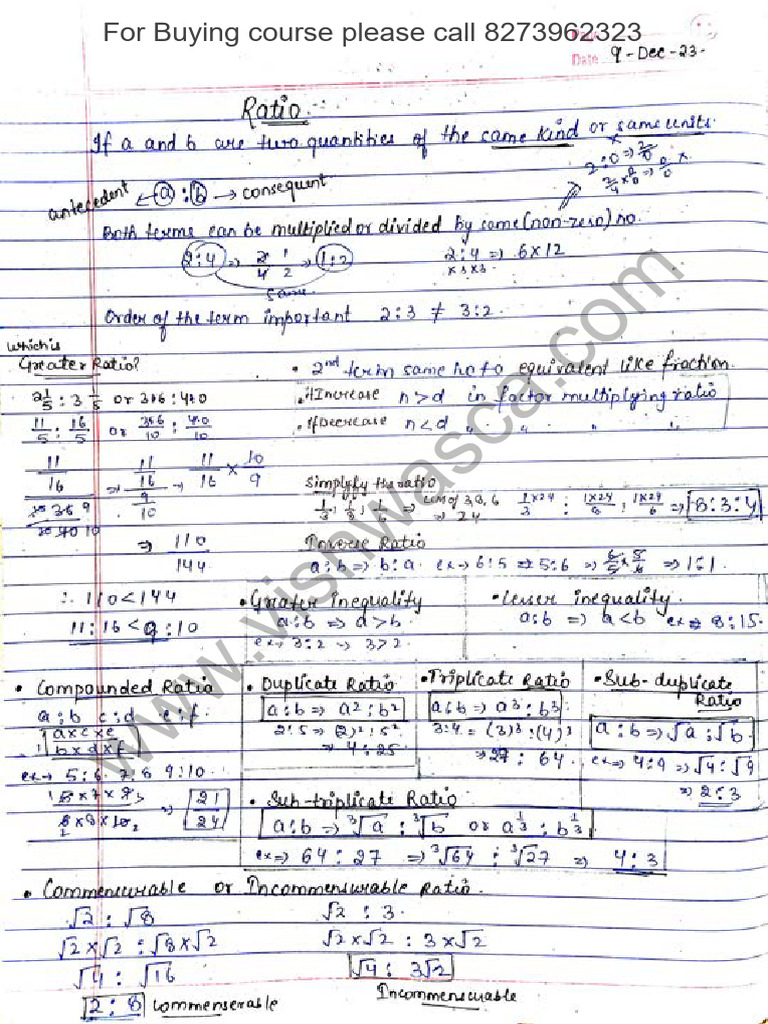 For Buying course please call 8273962323
Date 9-Dec-23.
Ratio
If a and b are two quantities of the same kind or same units.
2:0 => 2/0 ×
2/4 × 0/0 => 0/0 ×
antecedent ← a : b → consequent
Both terms can be multiplied or divided by same (non-zero) no.
2:4 => 2/4 1/2 => 1:2
same
2:4 => 6×12
×3 ×3
Order of the term important 2:3 ≠ 3:2.
which is
Greater Ratio?
2 1/5 : 3 1/5 or 3.6 : 4.0
11/5 : 16/5 or 36/10 : 40/10
11/16
36 9
40 10
=> 11/16 / 9/10 → 11/16 × 10/9
=> 110/144
∴ 110 < 144
11:16 < 9:10
• 2nd term same ratio equivalent like fraction.
• If Increase n>d in factor multiplying ratio
• If Decrease n<d " " " "
Simplify the ratio
1/3 : 1/8 : 1/6 => LCM of 3, 8, 6 => 24
1×24/3 : 1×24/8 : 1×24/6 => 8:3:4
Inverse Ratio
a:b => b:a. ex → 6:5 => 5:6 => 6/5 × 5/6 => 1:1
• Greater inequality
a:b => a>b
ex → 3:2 → 3>2
• Lesser inequality.
a:b => a<b ex => 8:15.
• Compounded Ratio
a:b c:d e:f.
a×c×e
b×d×f
ex → 5:6 7:8 9:10
5×7×9 3
6×8×10 2
=> 21/24
• Duplicate Ratio
a:b => a² : b²
2:5 => (2)² : 5²
=> 4:25
• Triplicate Ratio
a:b => a³ : b³
3:4 = (3)³ : (4)³
=> 27 : 64
• Sub-duplicate Ratio
a:b => √a : √b
ex → 4:9 → √4 : √9
=> 2:3
• Sub-triplicate Ratio
a:b => ³√a : ³√b or a^1/3 : b^1/3
ex => 64 : 27 => ³√64 : ³√27 => 4:3
• Commensurable or Incommensurable Ratio.
√2 : √8
√2×√2 : √8×√2
√4 : √16
2 : 8 Commenserable
√2 : 3.
√2×√2 : 3×√2
√4 : 3√2
Incommensurable
www.vishwasca.com